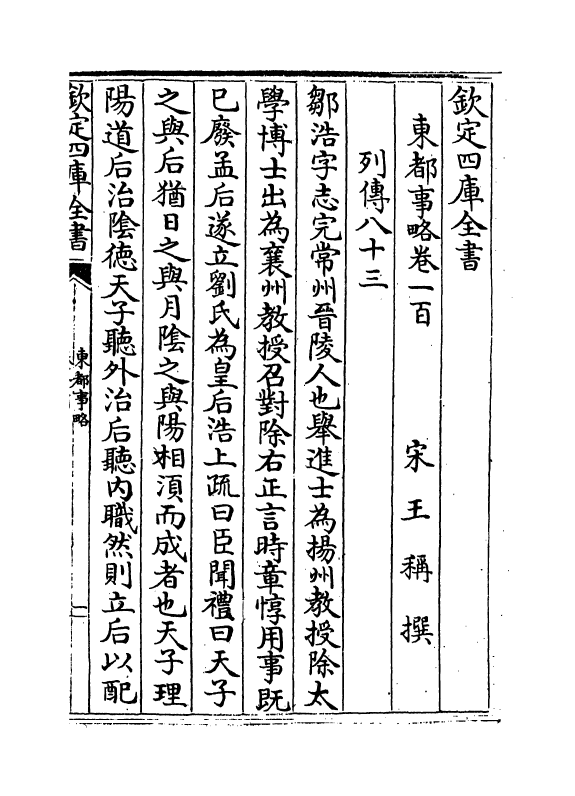 欽定四庫全書
東都事略卷一百　宋　王　稱　撰
列傳八十三
鄒浩字志完常州晉陵人也舉進士為揚州教授除太
學博士出為襄州教授召對除右正言時章惇用事既
已廢孟后遂立劉氏為皇后浩上疏曰臣聞禮曰天子
之與后猶日之與月陰之與陽相湏而成者也天子理
陽道后治陰徳天子聽外治后聽内職然則立后以配
欽定四庫全書
東都事略